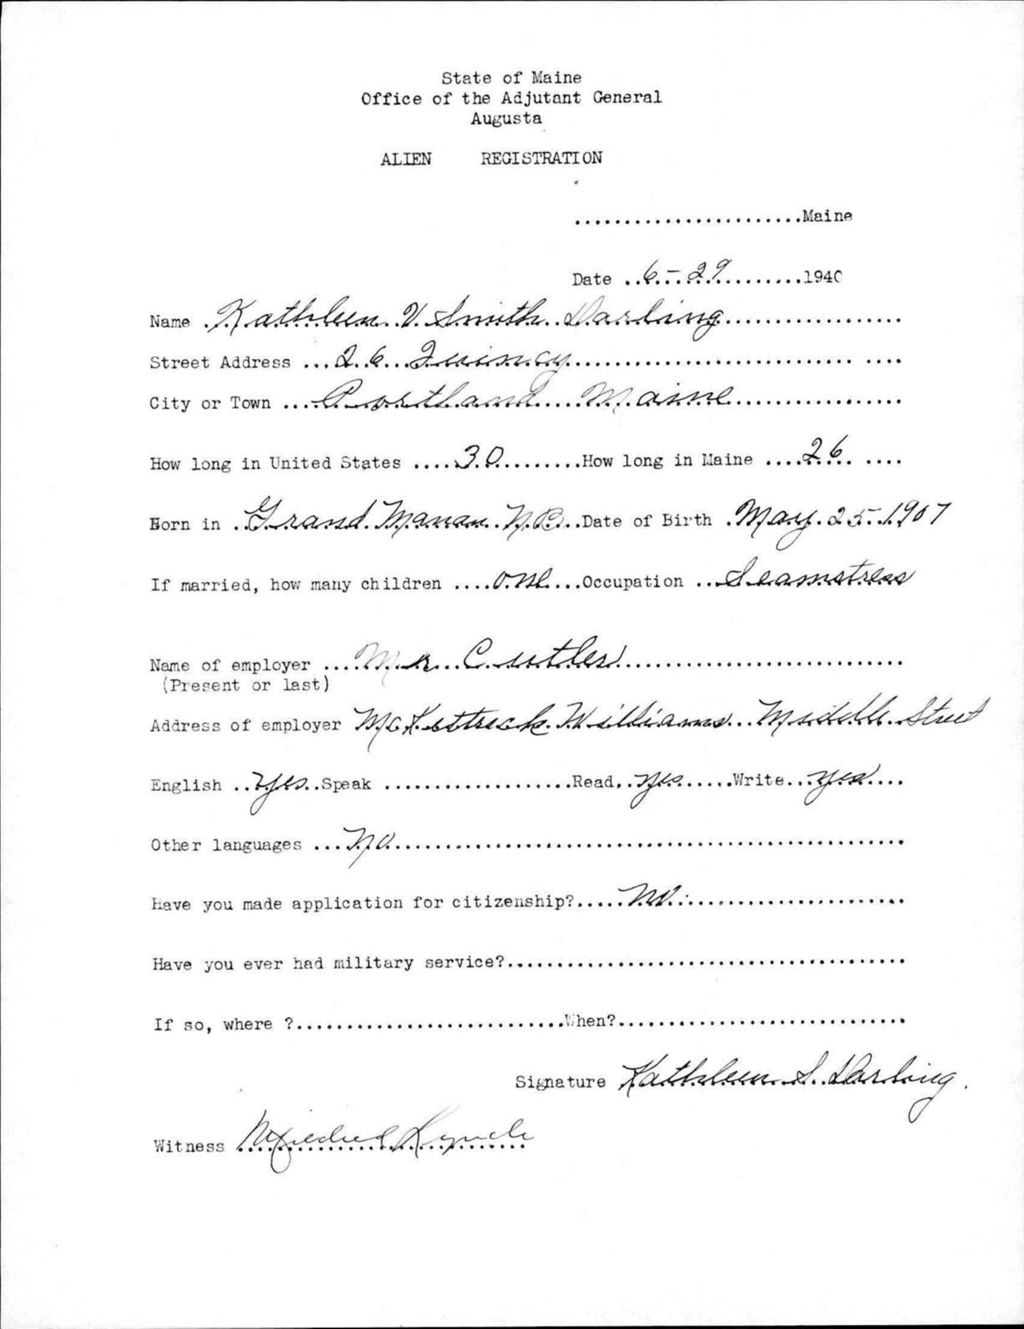 State of Maine
Office of the Adjutant General
Augusta
ALIEN REGISTRATION
.......................Maine
Date ..6-29.........1940
Name .Kathleen V. Smith Darling..................
Street Address ...26 Quincy..................................
City or Town ....Portland....Maine.................
How long in United States ....30.........How long in Maine ....26.. ....
Born in .Grand Manan. N.B...Date of Birth .May. 25. 1907
If married, how many children ....one...Occupation ..Seamstress
Name of employer ....Mr...Cutler............................
(Present or last)
Address of employer McKettrick Williams..Middle Street
English ..Yes..Speak ...................Read..yes.....Write..yes....
Other languages ...No...................................................
Have you made application for citizenship?.....No.......................
Have you ever had military service?........................................
If so, where ?...........................When?.............................
Signature Kathleen S. Darling.
Witness Mildred Lynch